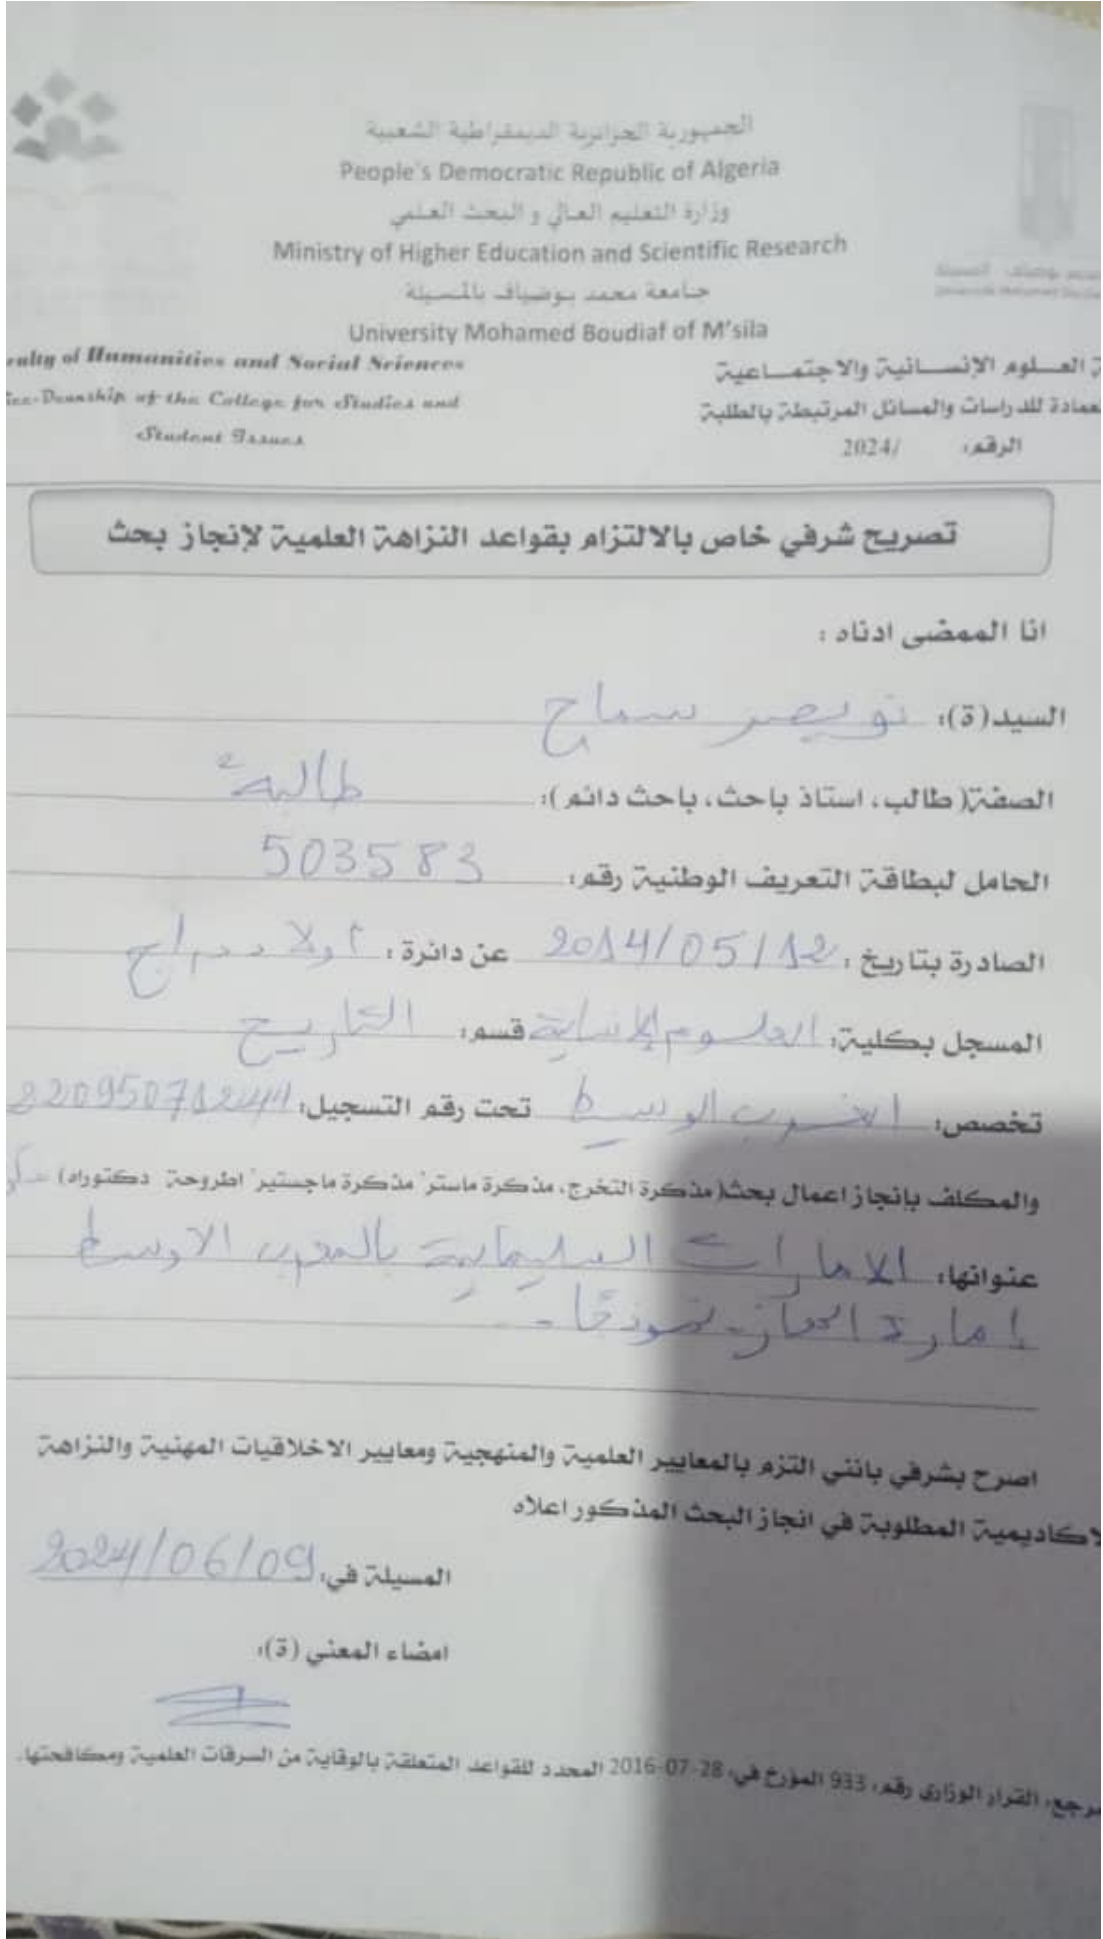 الجمهورية الجزائرية الديمقراطية الشعبية
People's Democratic Republic of Algeria
وزارة التعليم العالي و البحث العلمي
Ministry of Higher Education and Scientific Research
جامعة محمد بوضياف بالمسيلة
University Mohamed Boudiaf of M'sila
of Humanities and Social Sciences
of the College for Studies and
Student Issues
العلوم الإنسانية والاجتماعية
للدراسات والمسائل المرتبطة بالطلبة
الرقم: /2024
تصريح شرفي خاص بالالتزام بقواعد النزاهة العلمية لإنجاز بحث
انا الممضى ادناه :
السيد(ة): نويصر سماح
الصفة( طالب، استاذ باحث، باحث دائم ): طالبة
الحامل لبطاقة التعريف الوطنية رقم: 503583
الصادرة بتاريخ: 2014/05/12 عن دائرة: اولاد دراج
المسجل بكلية: العلوم الإنسانية قسم: التاريخ
تخصص: الوسيط تحت رقم التسجيل:
والمكلف بإنجاز اعمال بحث( مذكرة التخرج، مذكرة ماستر' مذكرة ماجستير' اطروحة دكتوراه)
عنوانها: الامارات السليمانية بالمغرب الاوسط
إمارة نموذجا -
اصرح بشرفي بانني التزم بالمعايير العلمية والمنهجية ومعايير الاخلاقيات المهنية والنزاهة
المطلوبة في انجاز البحث المذكور اعلاه
المسيلة في: 2024/06/09
امضاء المعني (ة):
القرار الوزاري رقم: 933 المؤرخ في: 28-07-2016 المحدد للقواعد المتعلقة بالوقاية من السرقات العلمية ومكافحتها.